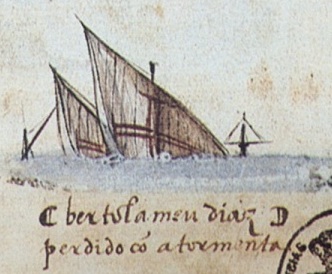 bertolameu diaz
perdido cõ a tormenta